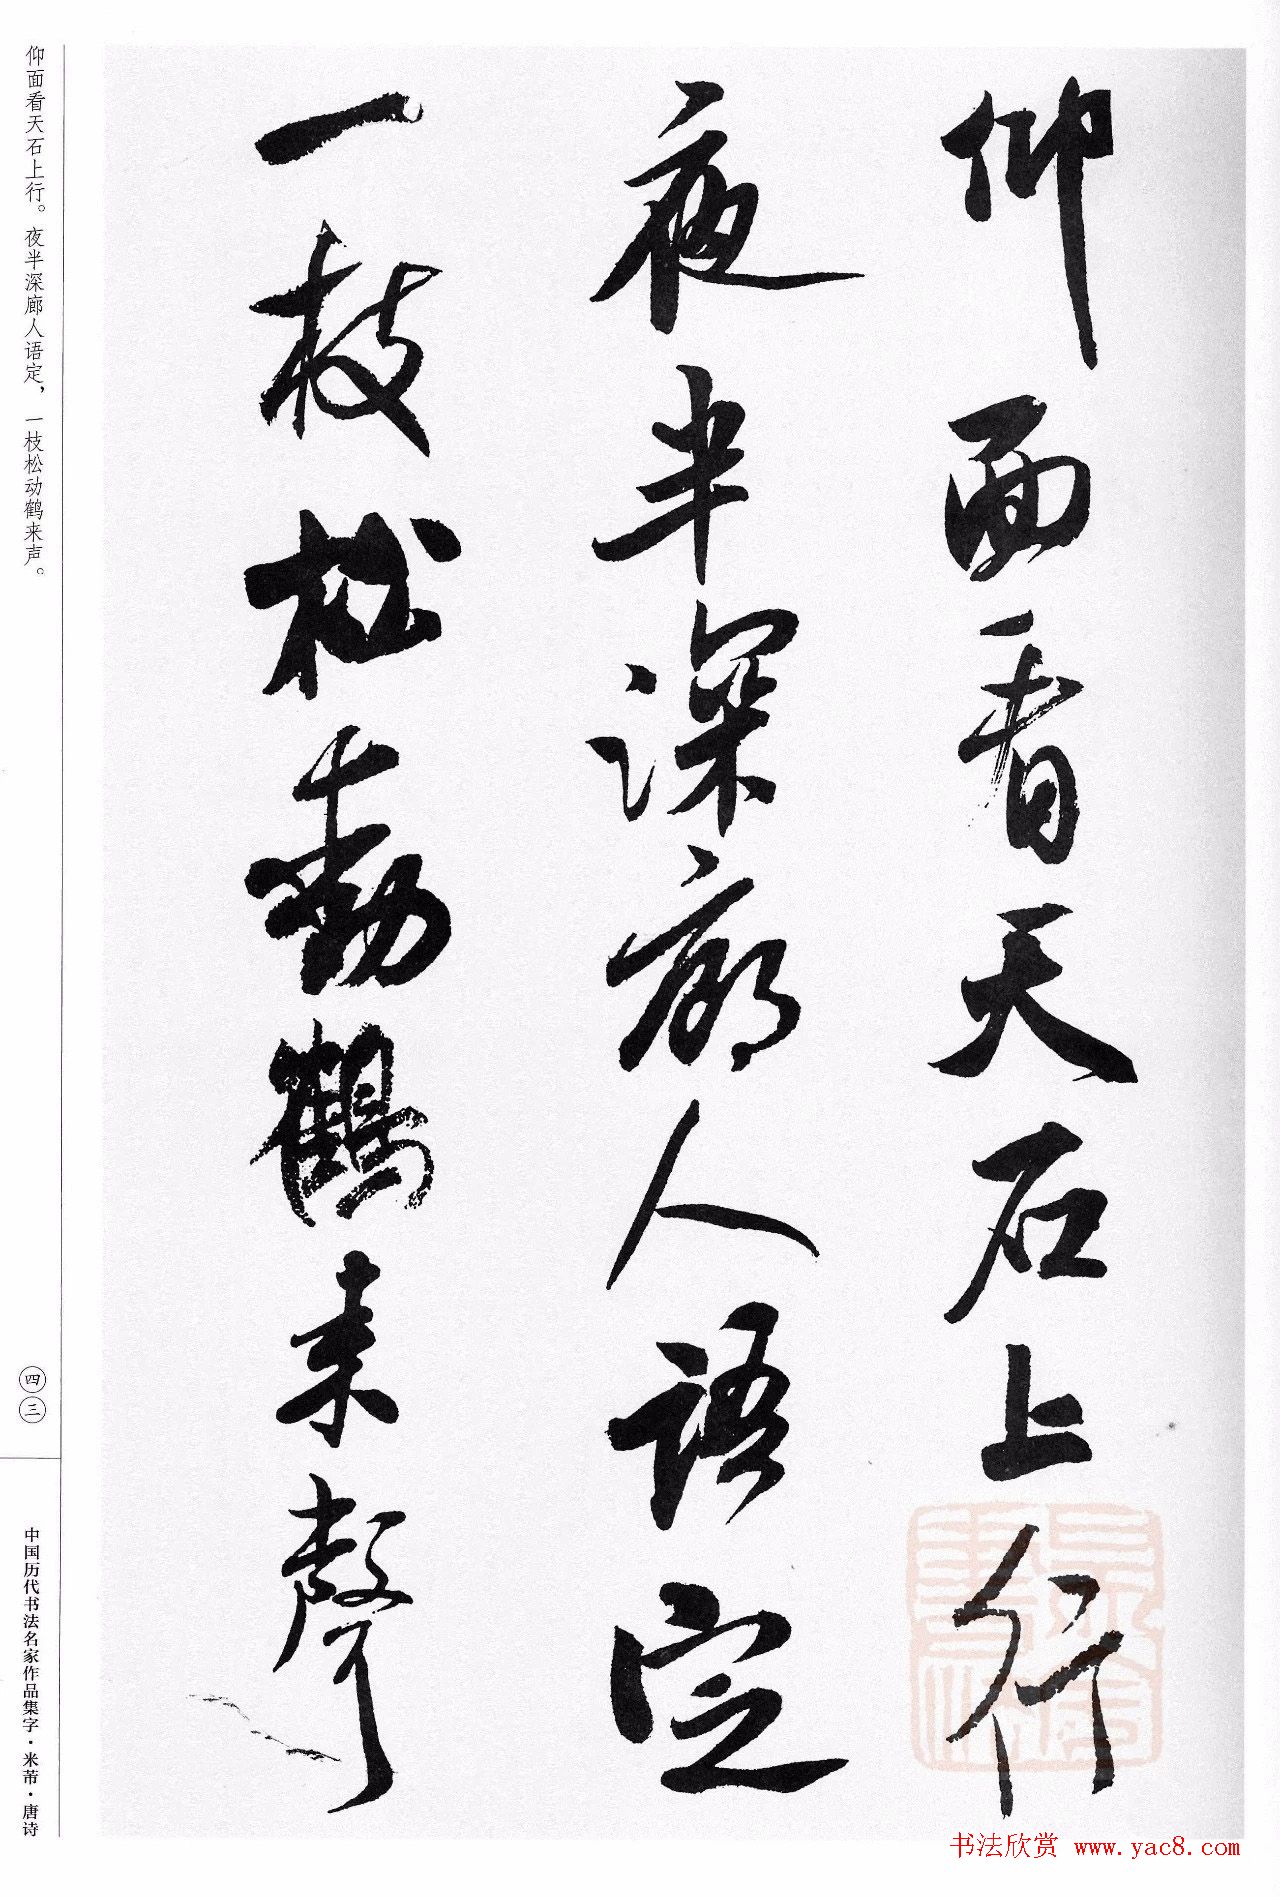 仰面看天石上行
夜半深廊人语定
一枝松動鶴来聲
仰面看天石上行。夜半深廊人语定，一枝松动鹤来声。
四三
中国历代书法名家作品集字·米芾·唐诗
书法欣赏 www.yac8.com